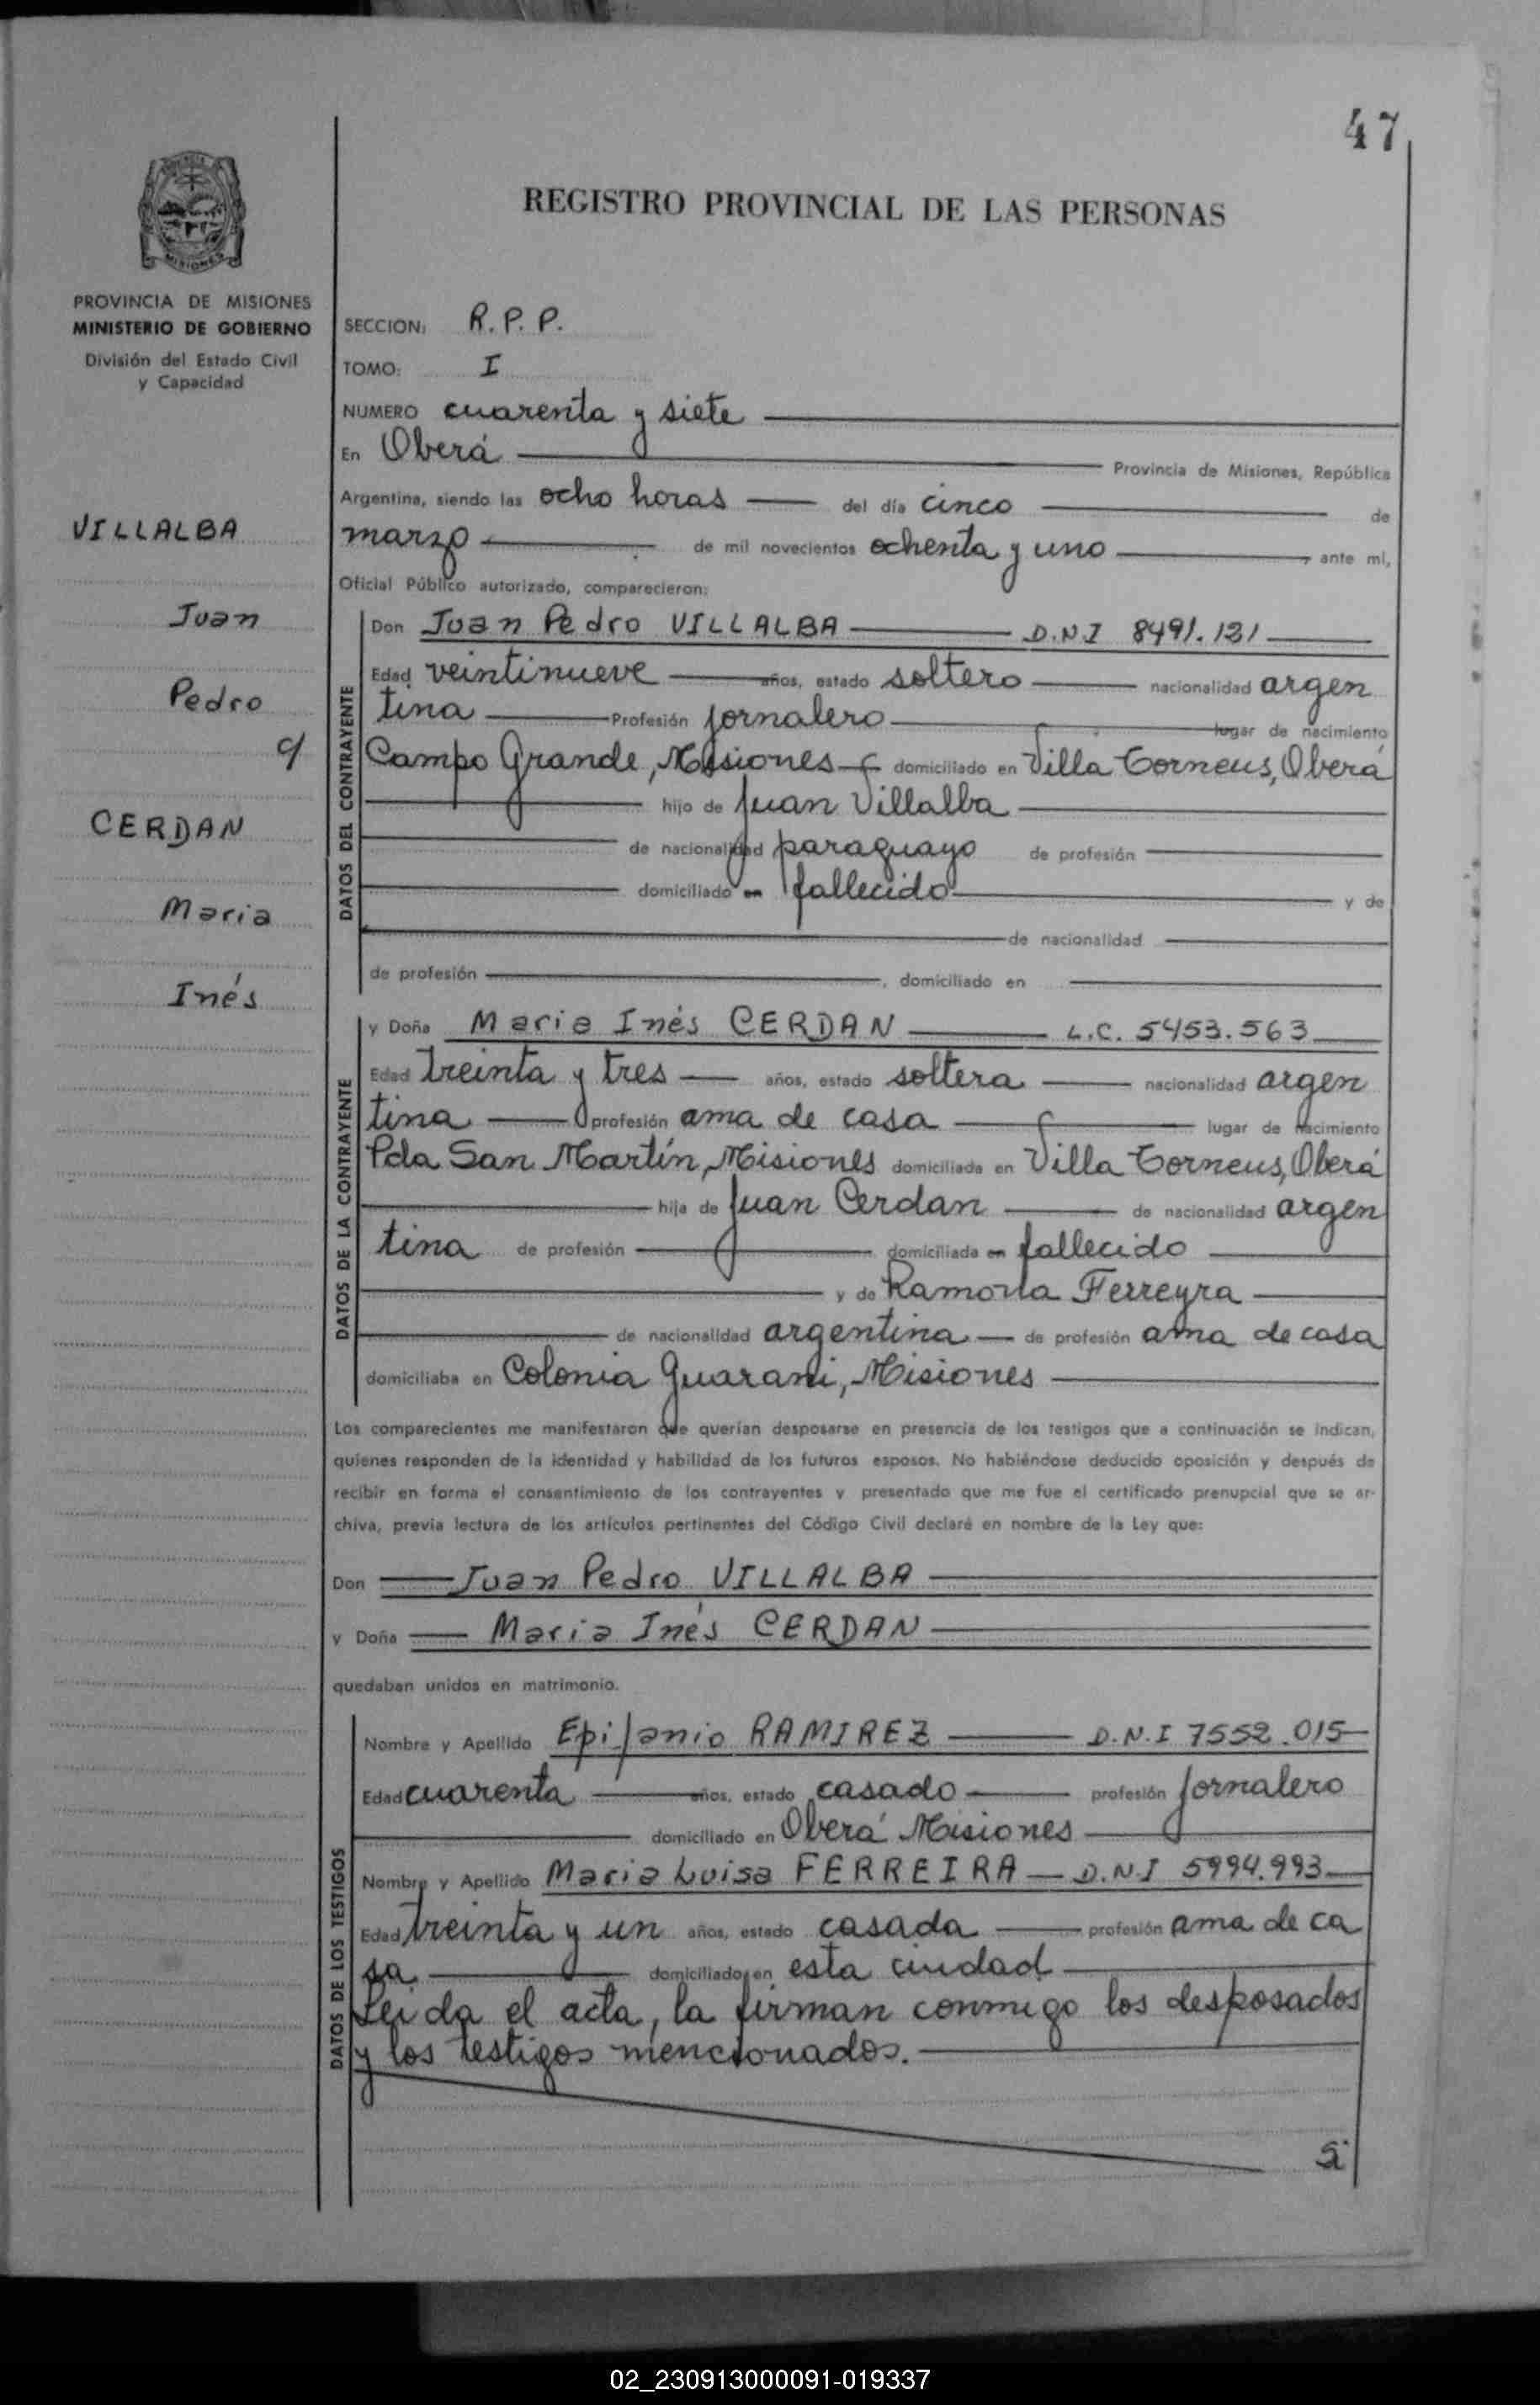 47
REGISTRO PROVINCIAL DE LAS PERSONAS
MISIONES
PROVINCIA DE MISIONES
MINISTERIO DE GOBIERNO
División del Estado Civil
y Capacidad
VILLALBA
Juan
Pedro
c/
CERDAN
Maria
Inés
SECCION: R. P. P.
TOMO: I
NUMERO cuarenta y siete
En Oberá Provincia de Misiones, República
Argentina, siendo las ocho horas del día cinco de
marzo de mil novecientos ochenta y uno ante mí,
Oficial Público autorizado, comparecieron:
DATOS DEL CONTRAYENTE
Don Juan Pedro VILLALBA D.N.I 8491.121
Edad veintinueve años, estado soltero nacionalidad argen
tina Profesión jornalero lugar de nacimiento
Campo Grande, Misiones domiciliado en Villa Torneus, Oberá
hijo de Juan Villalba
de nacionalidad paraguayo de profesión
domiciliado en fallecido y de
de nacionalidad
de profesión , domiciliado en
DATOS DE LA CONTRAYENTE
y Doña Maria Inés CERDAN L.C. 5453.563
Edad treinta y tres años, estado soltera nacionalidad argen
tina profesión ama de casa lugar de nacimiento
Pda San Martín, Misiones domiciliada en Villa Torneus, Oberá
hija de Juan Cerdan de nacionalidad argen
tina de profesión domiciliada en fallecido
y de Ramona Ferreyra
de nacionalidad argentina de profesión ama de casa
domiciliaba en Colonia Guarani, Misiones
Los comparecientes me manifestaron que querían desposarse en presencia de los testigos que a continuación se indican,
quienes responden de la identidad y habilidad de los futuros esposos. No habiéndose deducido oposición y después de
recibir en forma el consentimiento de los contrayentes y presentado que me fue el certificado prenupcial que se ar-
chiva, previa lectura de los artículos pertinentes del Código Civil declaré en nombre de la Ley que:
Don Juan Pedro VILLALBA
y Doña Maria Inés CERDAN
quedaban unidos en matrimonio.
DATOS DE LOS TESTIGOS
Nombre y Apellido Epifanio RAMIREZ D.N.I 7552.015
Edad cuarenta años, estado casado profesión jornalero
domiciliado en Oberá Misiones
Nombre y Apellido Maria Luisa FERREIRA D.N.I 5994.993
Edad treinta y un años, estado casada profesión ama de ca
sa domiciliado en esta ciudad
Leida el acta, la firman conmigo los desposados
y los testigos mencionados.
02_230913000091-019337